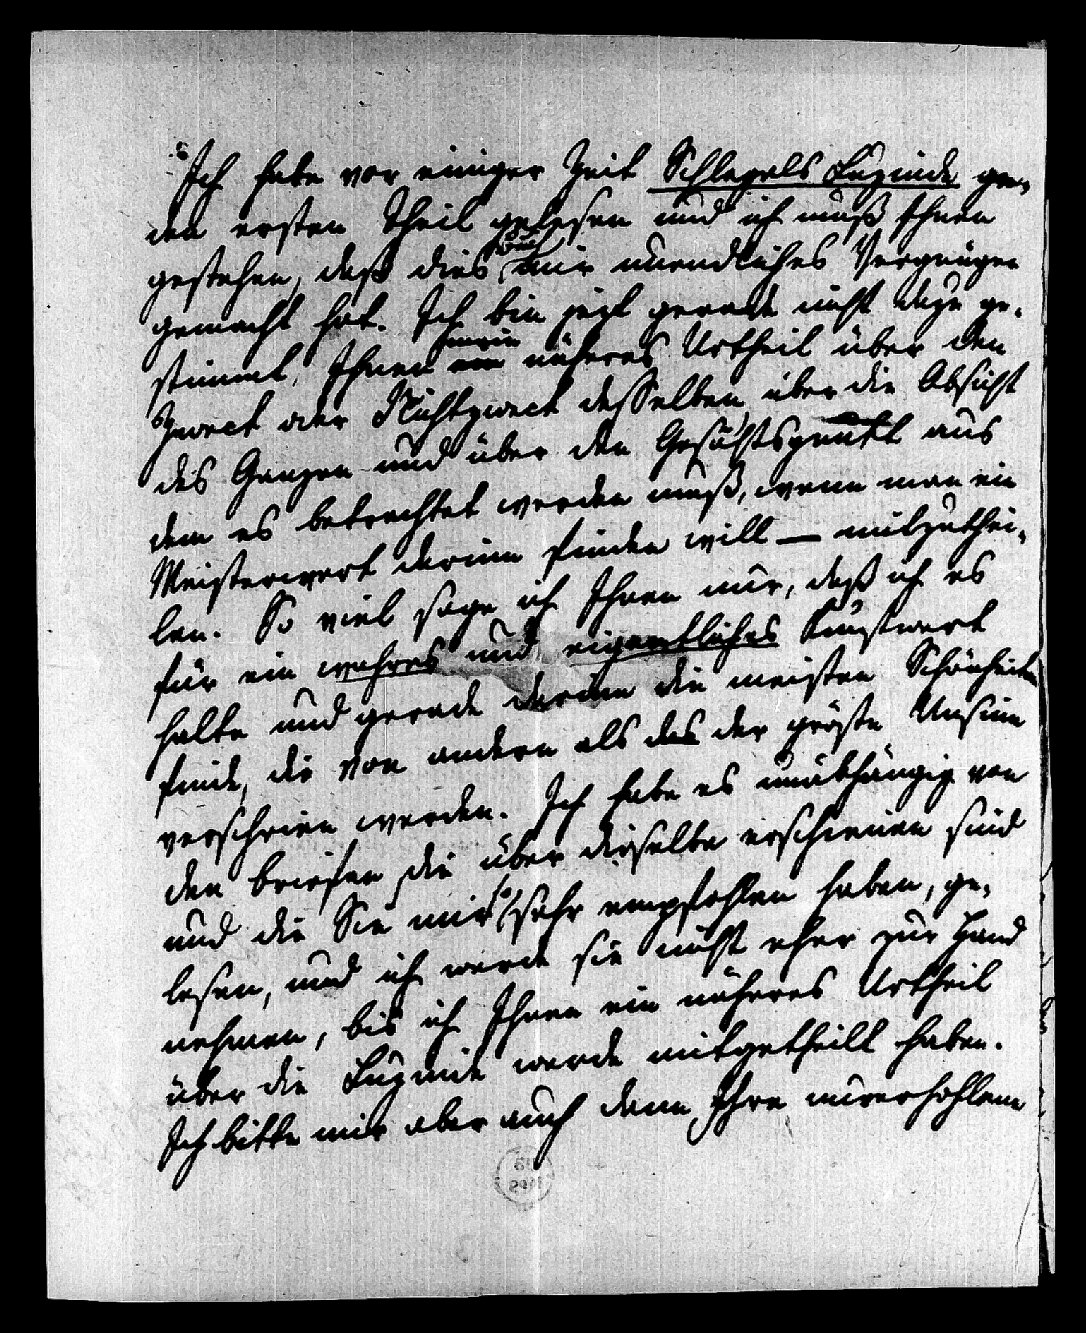 "Ich habe vor einiger Zeit Schlegels Luzinde ge-
den ersten Theil gelesen und ich muß Ihnen
gestehen, daß dies Buch mir unendliches Vergnügen
gemacht hat. Ich bin jezt gerade nicht dazu ge-
stimmt, Ihnen mein näheres Urtheil über den
Zweck oder Nichtzweck desselben, über die Absicht
des Ganzen und über den Gesichtspunkt aus
dem es betrachtet werden muß, wenn man ein
Meisterwerk darinn finden will — mitzuthei-
len. So viel sage ich Ihnen nur, daß ich es
für ein wahres und eigentliches Kunstwerk
halte und gerade darinn die meisten Schönheiten
finde, die von andern als das der gröste Unsinn
verschrien werden. Ich habe es unabhängig von
den Briefen, die über dieselbe erschienen sind
und die Sie mir so sehr empfohlen haben, ge-
lesen, und ich werde sie nicht eher zur Hand
nehmen, bis ich Ihnen ein näheres Urtheil
über die Luzinde werde mitgetheilt haben.
Ich bitte mir aber auch dann Ihre unverhohlene